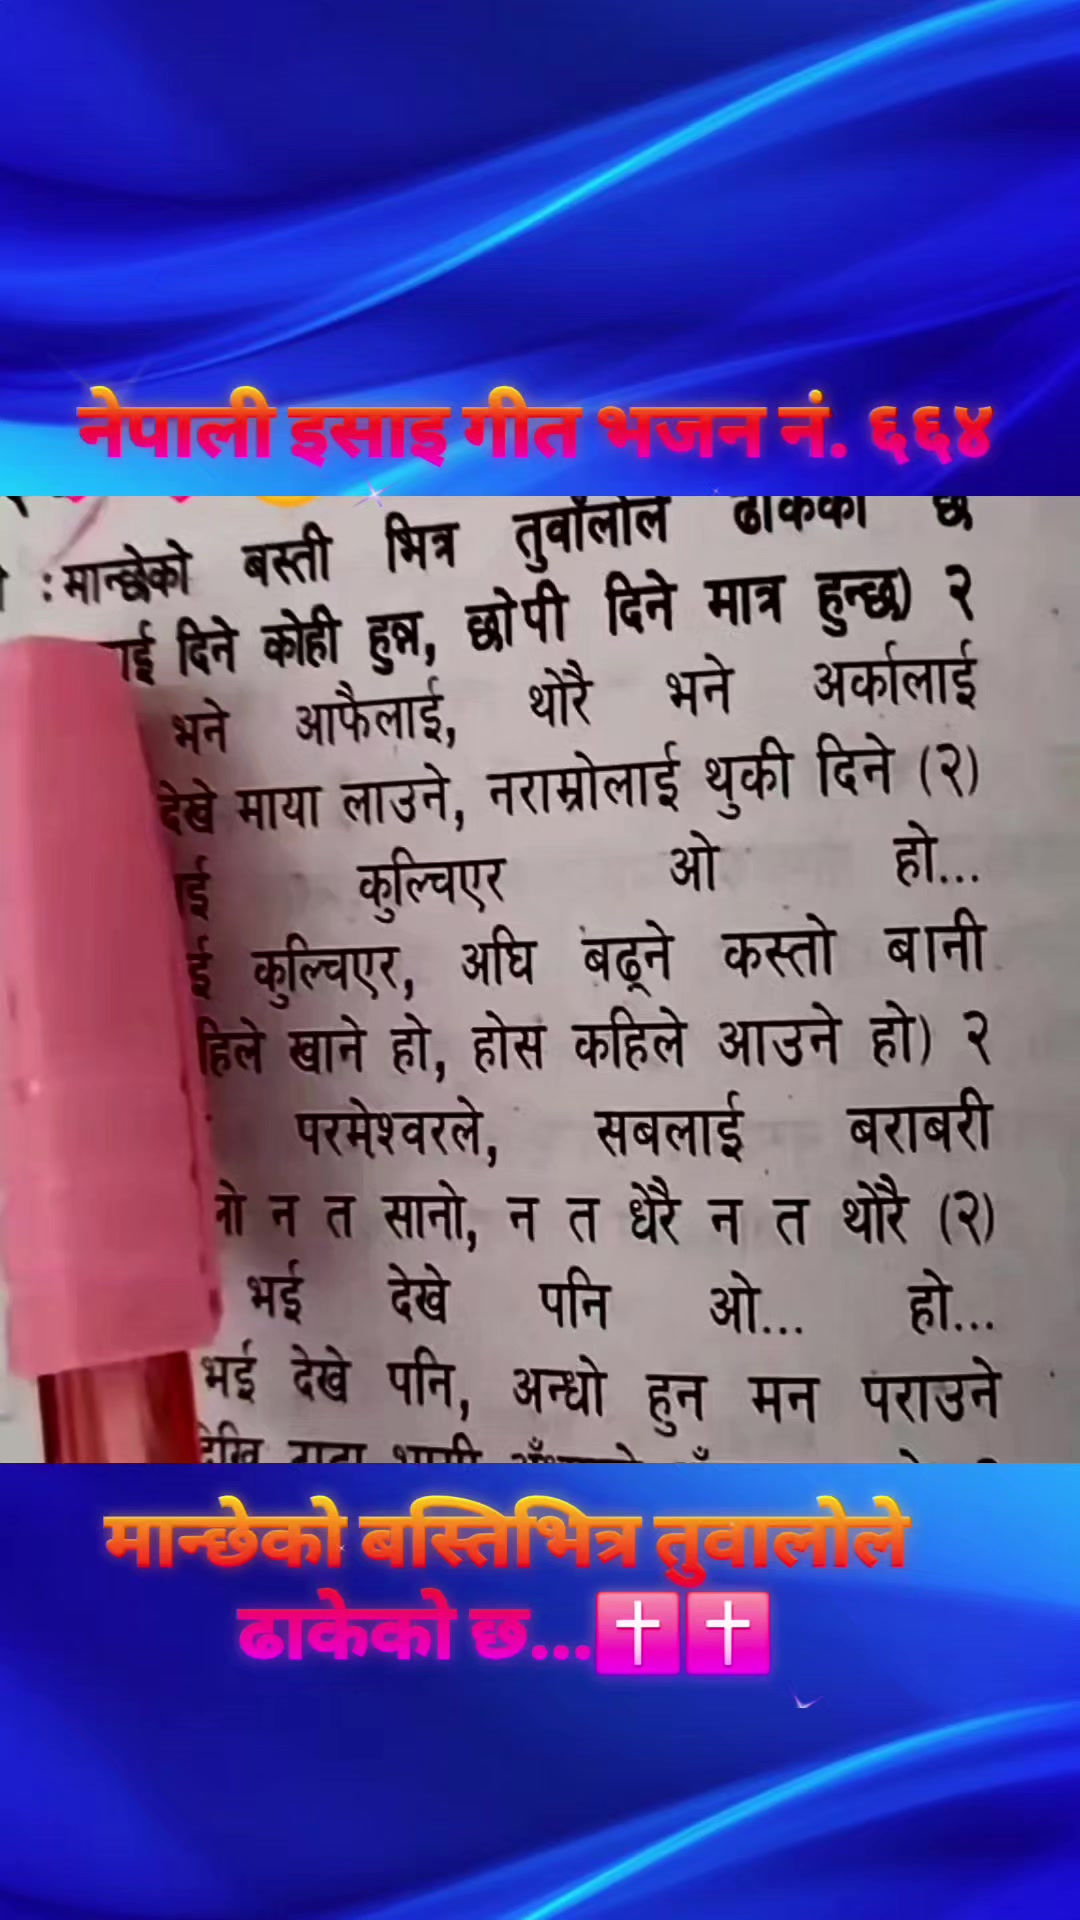 नेपाली इसाइ गीत भजन नं. ६६४
:मान्छेको बस्ती भित्र तुवाँलोले ढाकेको छ
दिने कोही हुन्न, छोपी दिने मात्र हुन्छ) २
भने आफैलाई, थोरै भने अर्कालाई
देखे माया लाउने, नराम्रोलाई थुकी दिने (२)
कुल्चिएर ओ हो...
कुल्चिएर, अघि बढ्ने कस्तो बानी
खाने हो, होस कहिले आउने हो) २
परमेश्वरले, सबलाई बराबरी
न त सानो, न त धेरै न त थोरै (२)
भई देखे पनि ओ... हो...
भई देखे पनि, अन्धो हुन मन पराउने
मान्छेको बस्तिभित्र तुवालोले
ढाकेको छ...✝️✝️